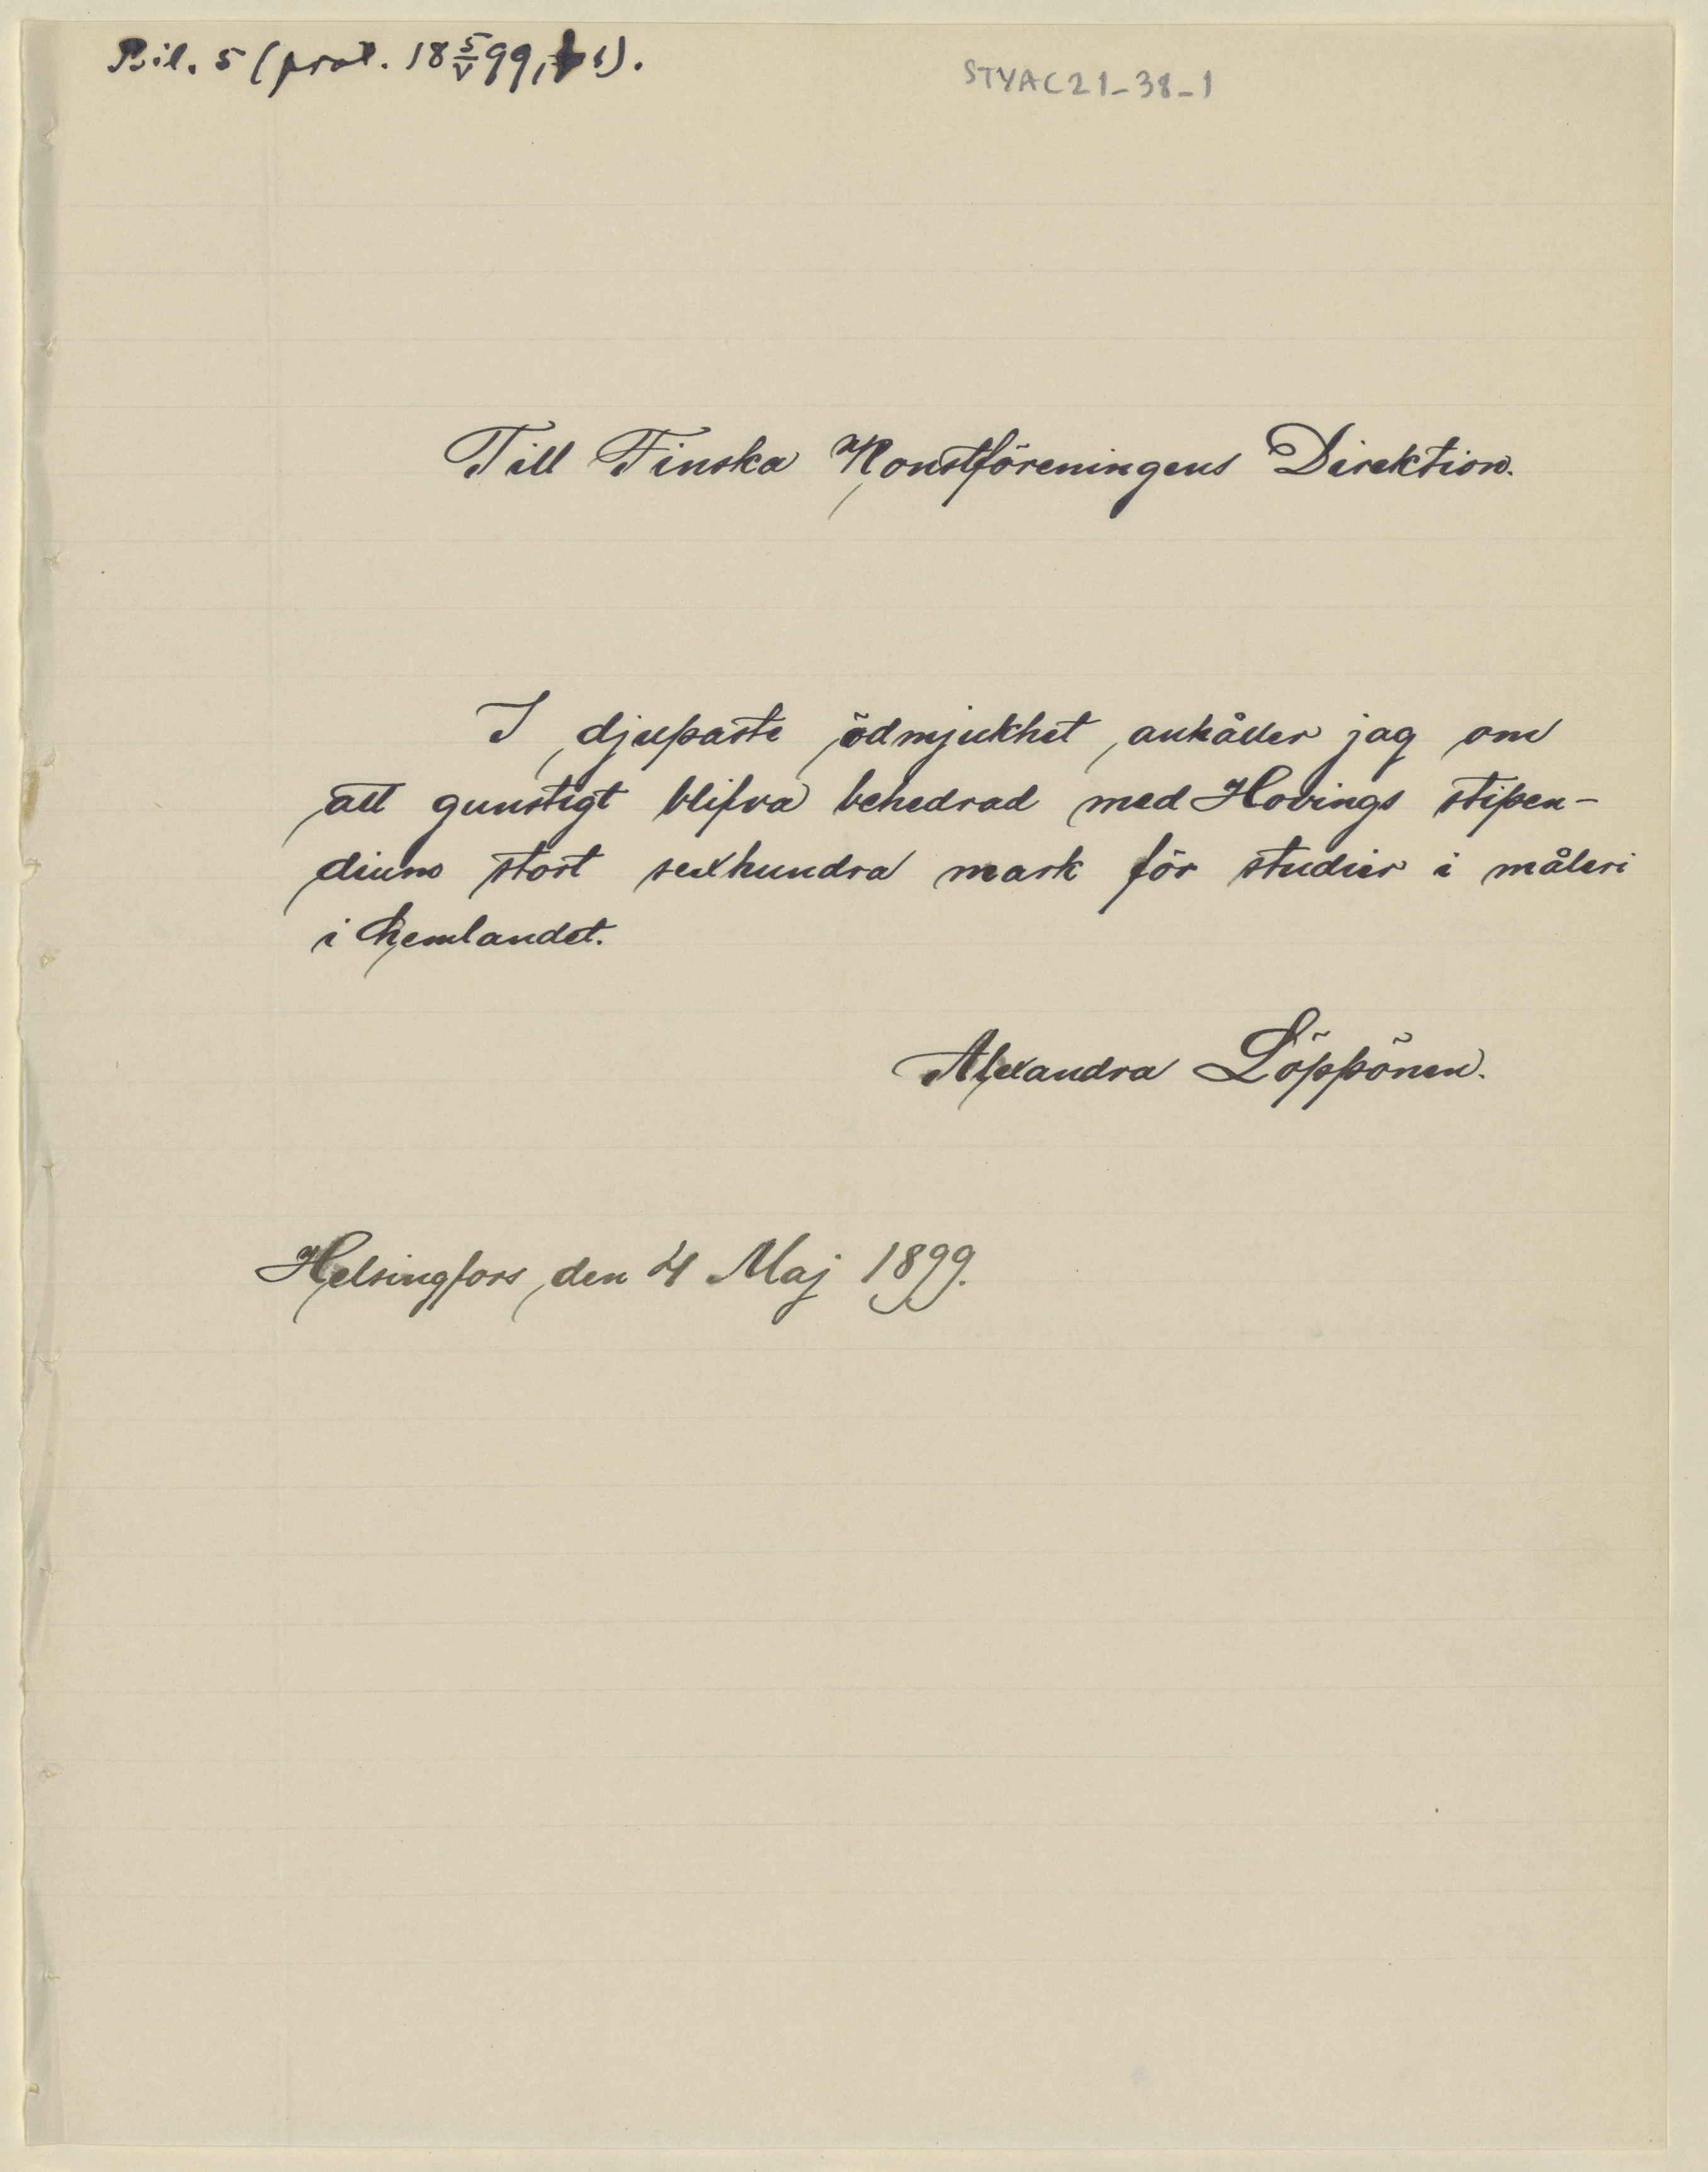 Bil. 5 (prot. 18 5/V 99, § 1).
STYAC21-38-1
Till Finska Konstföreningens Direktion.
I djupaste ödmjukhet anhåller jag om
att gunstigt blifva behedrad med Hovings stipen-
dium stort sexhundra mark för studier i måleri
i hemlandet.
Alexandra Löppönen.
Helsingfors, den 4 Maj 1899.